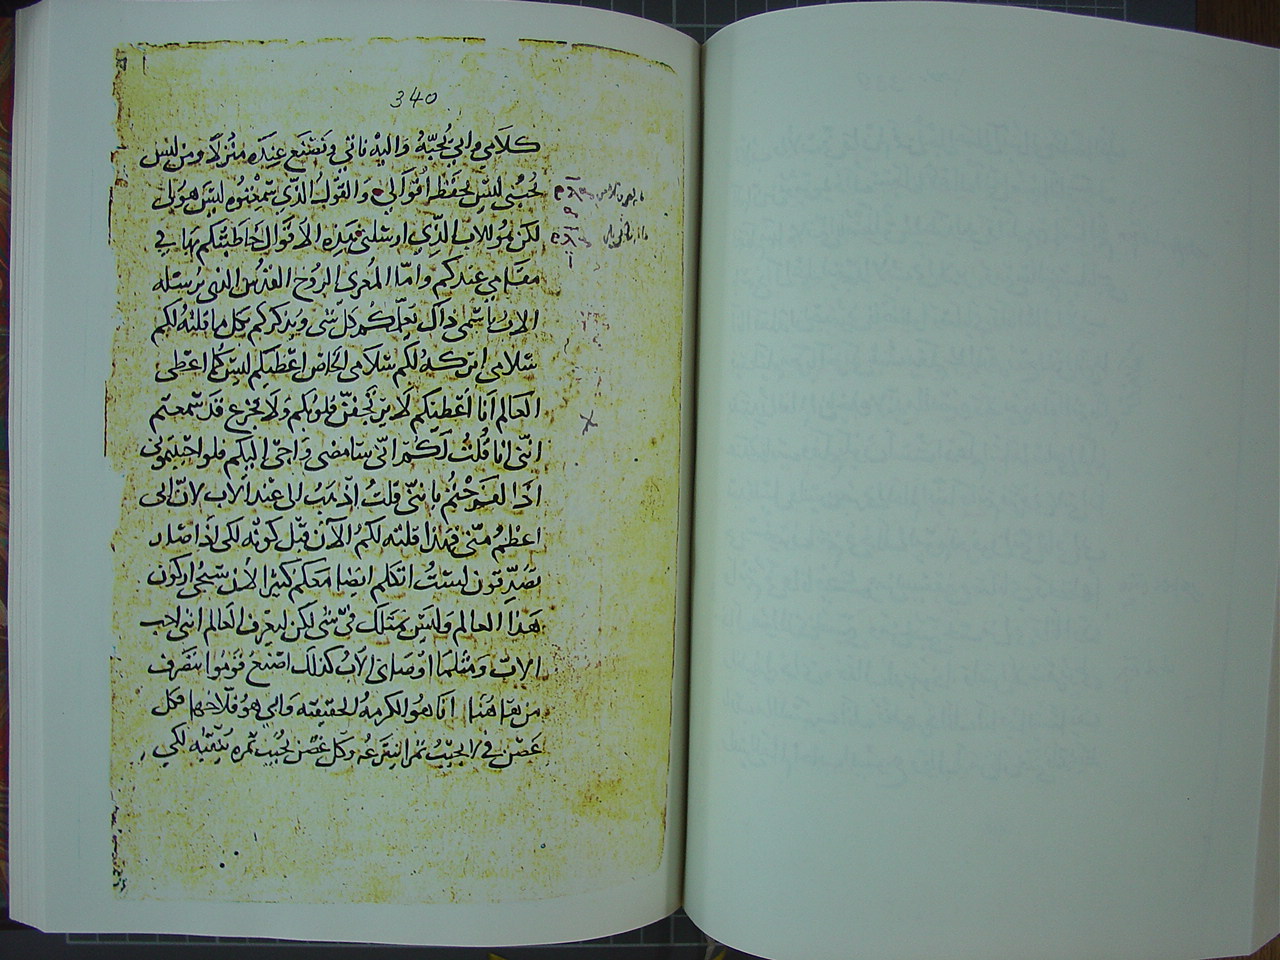 340
كلامي وابي يُحبّهُ وَاليهْ ناتي ونَصْنَع عِندَه مَنْزلاً ومن ليس
يُحبُّني ليسَ يحفَظ اقوالي وَالقول الذّي سَمعْتموُه ليسَ هو لي
لكن هوُ للاب الذّي ارسلني هَذِه الاقوال خاطبتكم بهَا في
مقامي عندكم وامّا المُعزى الروُح القدُس الذي يرُسله
الابُ باسْمى ذاك يعَلّمكم كل شى ويُذكركم بكل ما قلته لكم
سَلامى اتركهُ لكم سَلامى الخاصّ اعْطيكم ليسَ كما اعْطى
العَالم انَا اعْطيكم لا يرتجفنّ قلوُبكم وَلا تجزع قد سَمعتم
انّنى انا قُلتُ لكمُ انّى سَامضى وَاجى اليكم فلو احببتموُنى
اذَا لفرحْتم باننّى قلتُ اذهَبُ الى عنْد الاب لانّ ابى
اعْظمُ منّى فهذا قلته لكمُ الآن قبْل كونه لكى اذا صَار
تصَدّقون لسْتُ اتكلم ايضا معَكم كثيرا لان سَيجى اركون
هَذا العالم وَليسَ يمتلك فيّ شى لكن ليعرف العَالم اننى احب
الابّ وَمثلما اوْصَانى الابُ كذلكَ اصْنعُ قومُوا ننصَرف
من هَا هُنا انَا هوَ الكرمهُ الحقيقيَه وَابي هوُ فلاحُها فكل
غصن فيّ لا يجيبُ ثمرا ينزعهُ وكل غصْن يجيب ثمره ينقّيه لكي